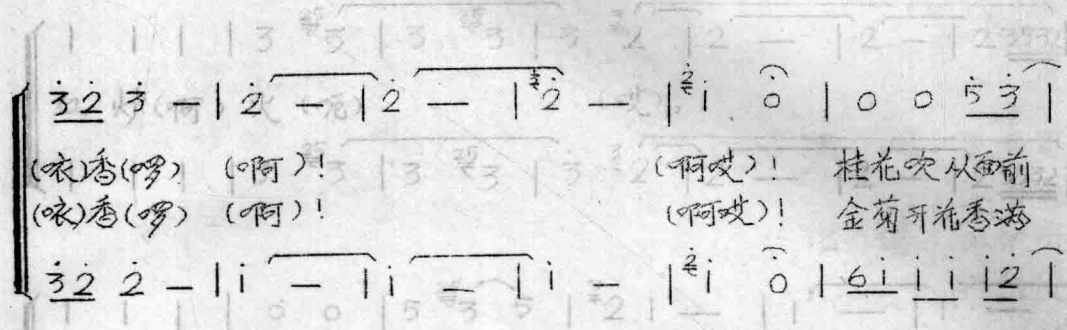 3̲̇2̲̇ 3̇ — | 2̇ — | 2̇ — | 2̇ — | i 0 | 0 0 5̲̇3̲̇ |
(咴)香(啰) (啊)! (啊哎)! 桂花吹从面前
(咴)香(啰) (啊)! (啊哎)! 金菊开花香满
3̲̇2̲̇ 2̇ — | i — | i — | i — | i 0 | 6̲i̲ i̲i̲ i̲2̲̇ |